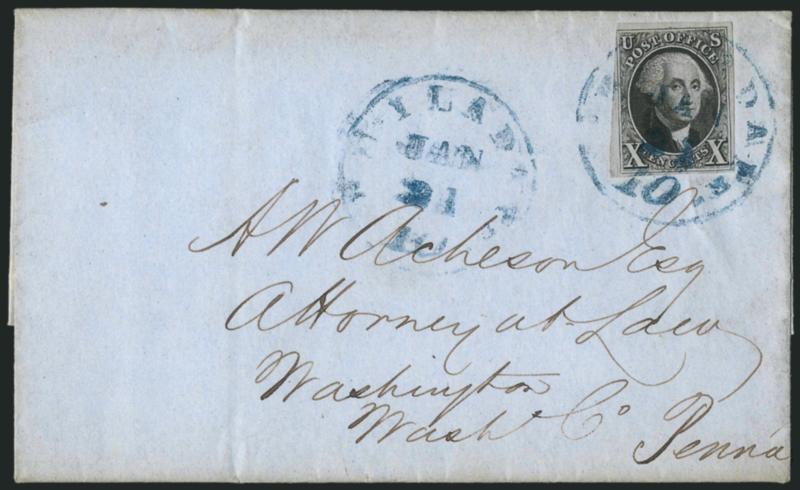 U S
POST OFFICE
X TEN CENTS X
JAN
21
10
A W Acheson Esq
Attorney at Law
Washington
Wash. Co
Penna